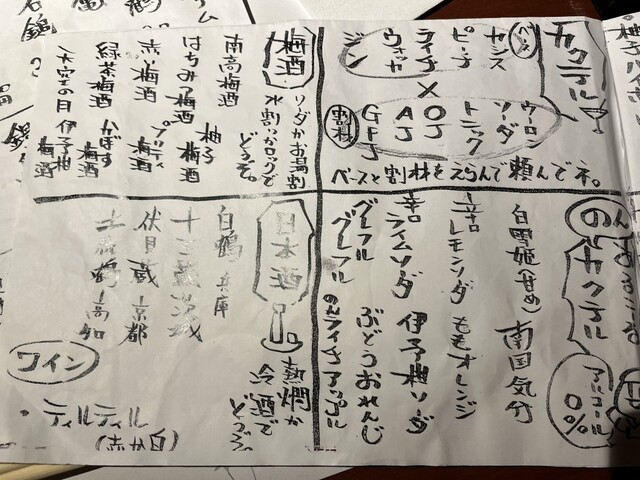 カクテル
ベース
カシス
ピーチ
ライチ
ウォッカ
ジン
×
ウーロン
ソーダ
トニック
OJ
AJ
GFJ
割材
ベースと割材をえらんで頼んでネ。
梅酒
ソーダかお湯割
水割りかロックで
どうぞ。
南高梅酒
はちみつ梅酒 柚子梅酒
赤い梅酒
緑茶梅酒 かぼす梅酒
大空の日 伊予柑梅酒
のん
カクテル
アルコール
0%
白雪姬(甘め) 南国気分
辛口レモンソーダ ももオレンジ
辛口ライムソーダ 伊予柑ソーダ
グレフルグレフル ぶどうおれんじ
のんライチアップル
日本酒
熱燗か
冷酒で
どうぞ
白鶴 兵庫
伏見蔵 京都
土佐鶴 高知
ワイン
・ティルティル
(白か赤)